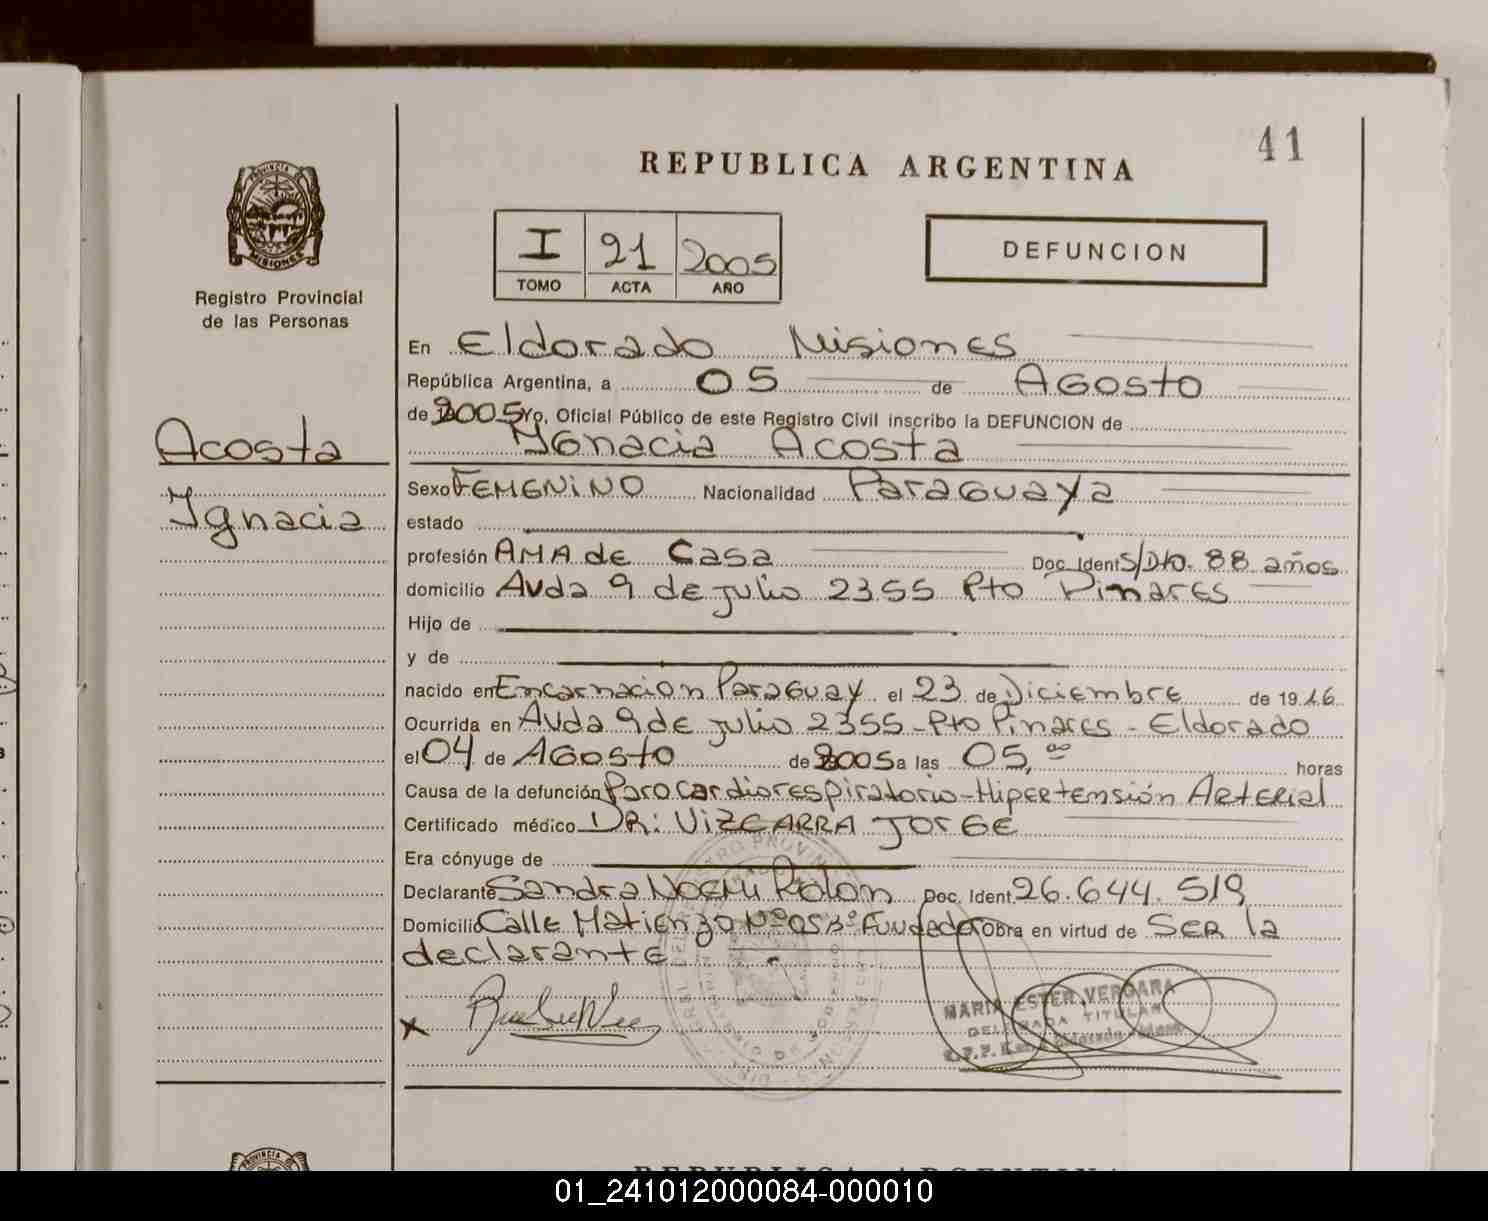 41
REPUBLICA ARGENTINA
PROVINCIA DE
MISIONES
Registro Provincial
de las Personas
I 21 2005
TOMO ACTA AÑO
DEFUNCION
En Eldorado Misiones
República Argentina, a 05 de Agosto
de 2005 Yo, Oficial Público de este Registro Civil inscribo la DEFUNCION de
Ignacia Acosta
Acosta
Ignacia
Sexo FEMENINO Nacionalidad Paraguaya
estado
profesión AMA de Casa Doc. Ident S/Dto. 88 años
domicilio Avda 9 de julio 2355 Pto Pinares
Hijo de
y de
nacido en Encarnacion Paraguay el 23 de Diciembre de 19 16
Ocurrida en Avda 9 de julio 2355 - Pto Pinares - Eldorado
el 04 de AGosto de 2005 a las 05,00 horas
Causa de la defunción Paro cardiorespiratorio - Hipertensión Arterial
Certificado médico DR: VIZCARRA JORGE
Era cónyuge de
Declarante Sandra Noemi Rolon Doc. Ident. 26.644.519
Domicilio Calle Matienzo Nº 05 Bº Obra en virtud de SER la
declarante
x
MARIA ESTER VERGARA
DELEGADA TITULAR
PROVINCIA
REPUBLICA ARGENTINA
01_241012000084-000010